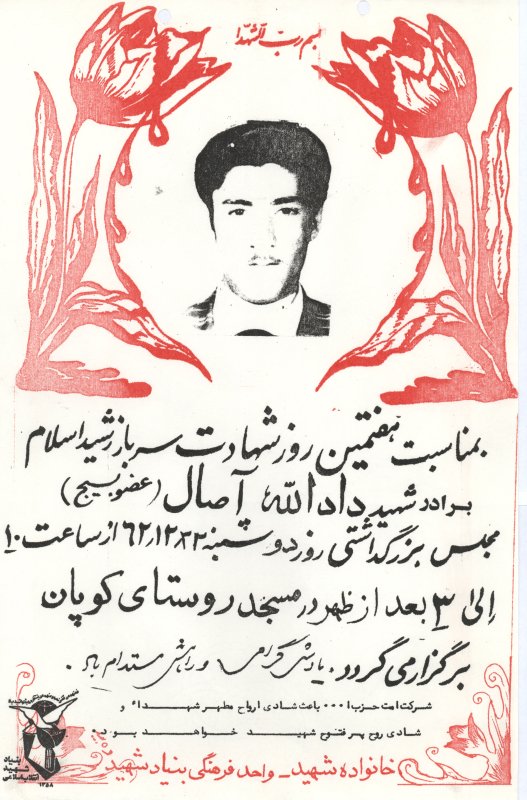 بسم رب الشهدا
بمناسبت هفتمین روز شهادت سرباز رشید اسلام
برادر شهید داداللّه آصال (عضو بسیج)
مجلس بزرگداشتی روز دوشنبه ۶۲٫۱۲٫۲۲ از ساعت ۱۰
الی ۳ بعد از ظهر در مسجد روستای کوپان
برگزار می گردد. یادش گرامی و راهش مستدام باد.
شرکت امت حزب ا ۰۰۰ باعث شادی ارواح مطهر شهداء و
شادی روح پر فتوح شهید خواهد بود
خانواده شهید - واحد فرهنگی بنیاد شهید
بنیاد
شهید
انقلاب اسلامی
۱۳۵۸